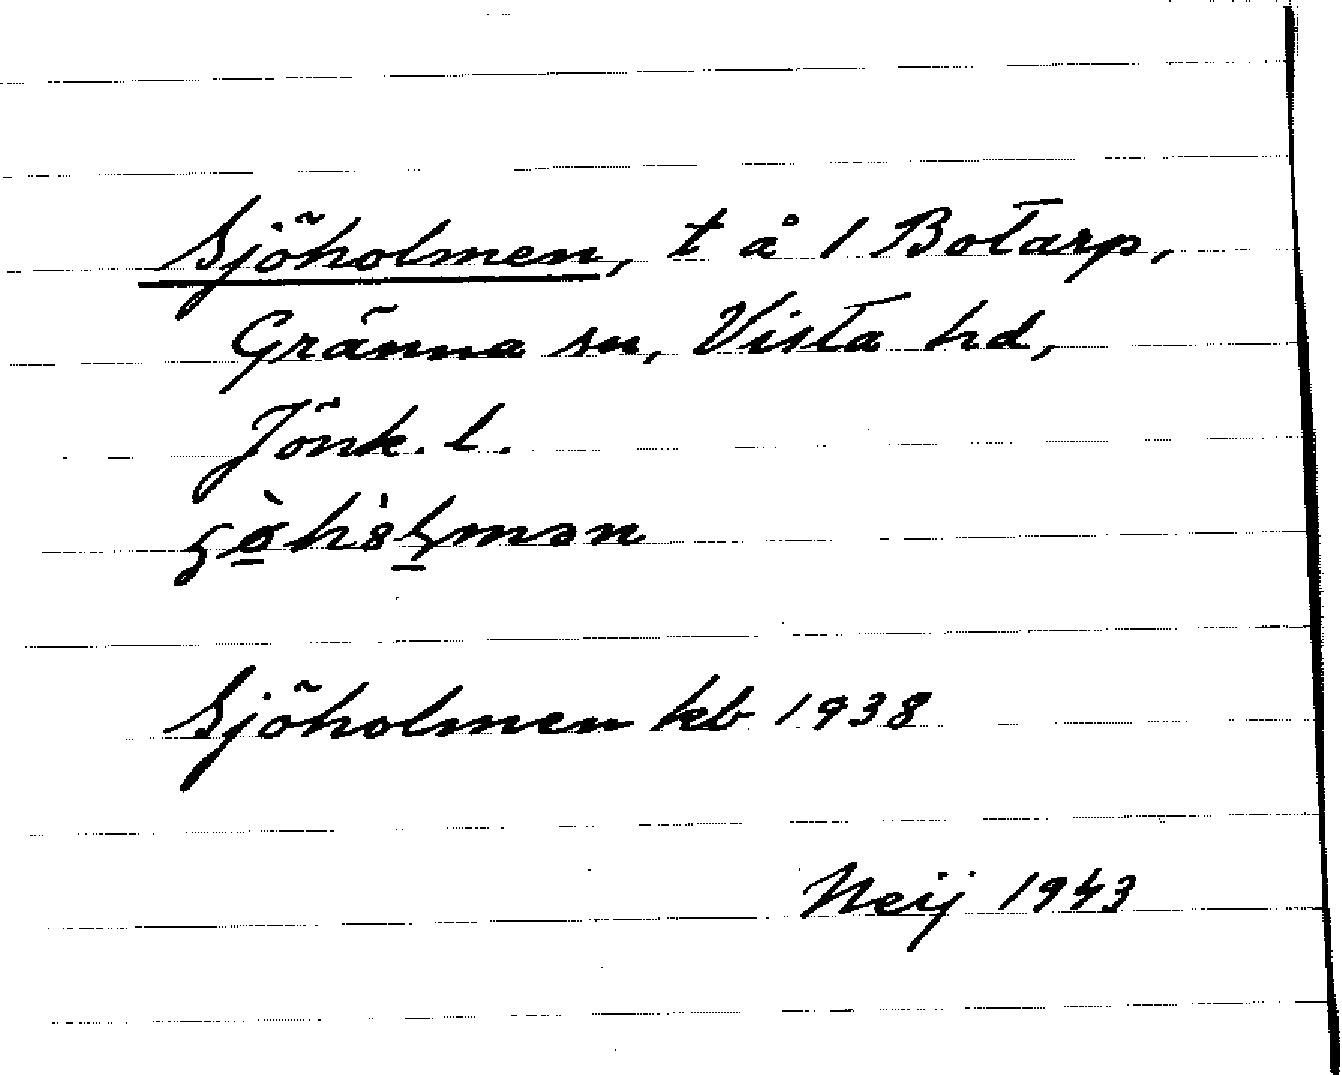 Sjöholmen, t å 1 Botarp,
Gränna sn, Vista hd,
Jönk. l.
Sjöholmen kb 1938
Neij 1943